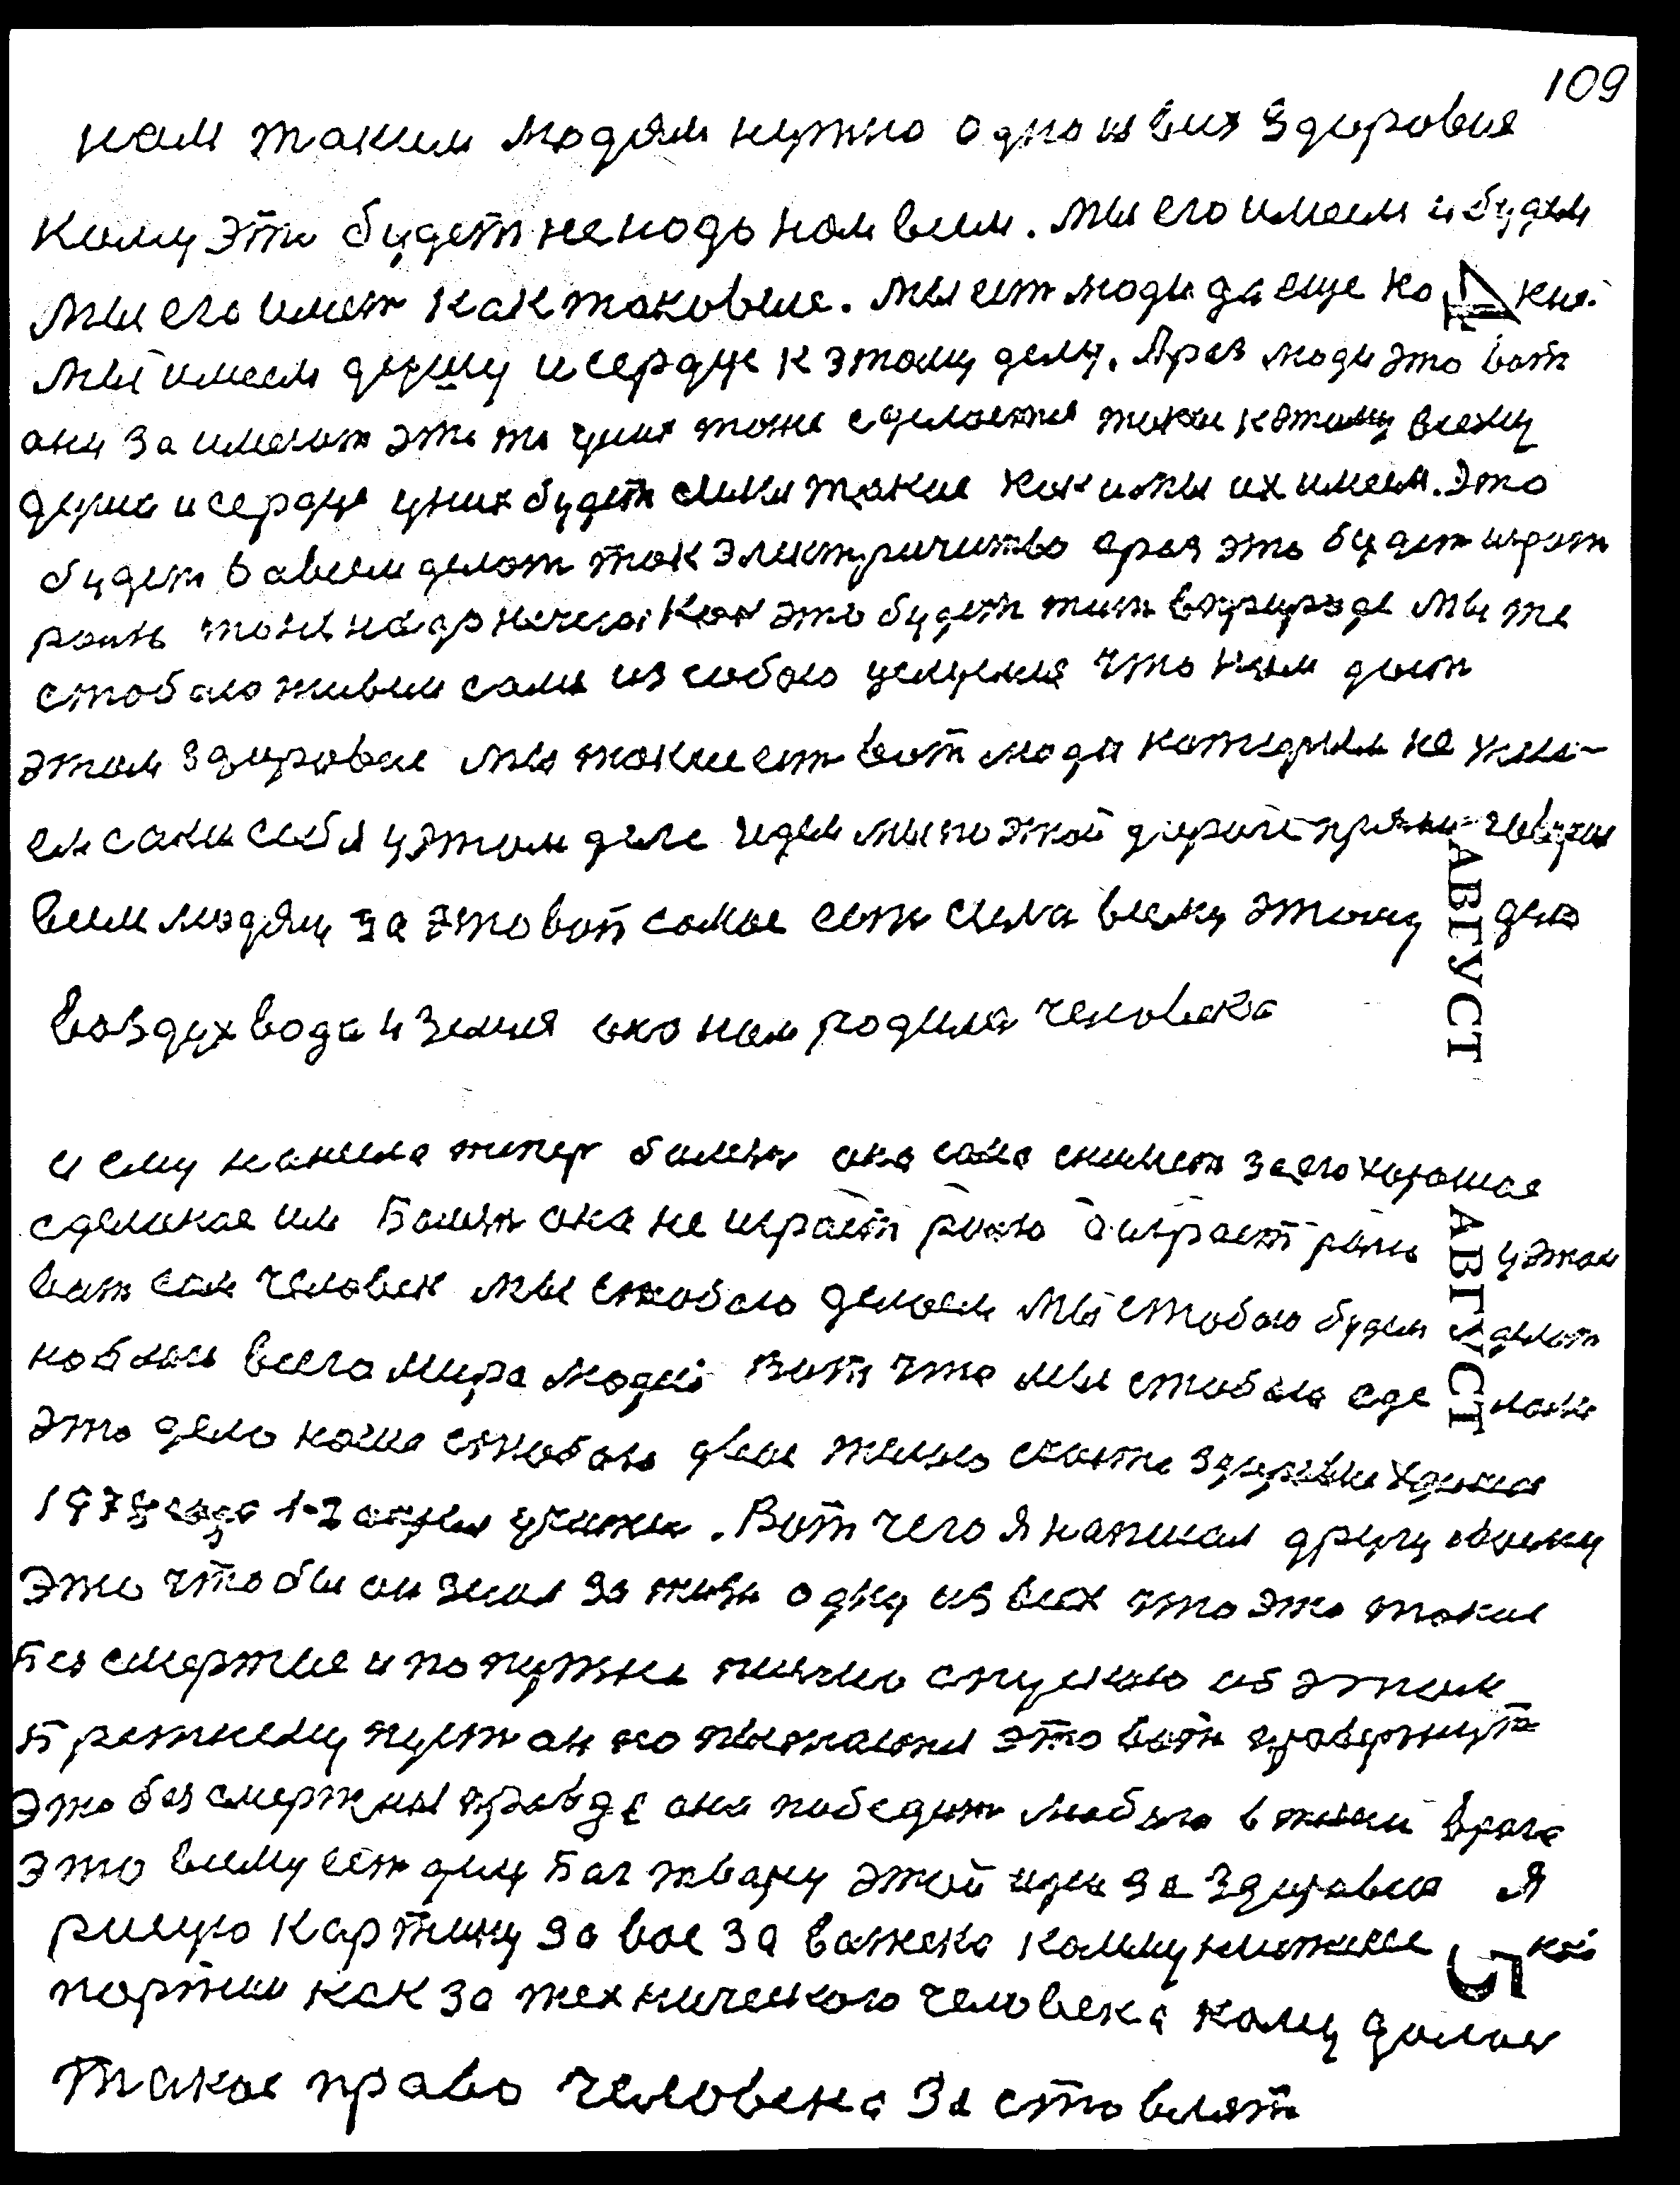 109
нам таким людям нужно одно из вих здоровия
кому это будет ненадо нам всем. Мы его имеем и будем
мы его имет как таковые. Мы ест люди да еще ка 4 кие.
Мы имеем душу и сердце к этому делу. Араз люди это вот
они за имеют это то у них тоже сделается такое к этому всему
душа и сердце у них будет такие как и мы их имеем. Это
будет делат так электричиство араз это будет играт
рол тоже надо нечего. Как это будет тип в природе мы те
стобою живем сами из собою что нам даст
этом здоровие мы такие ест вот люди которыи не жале-
ем сами себя у этом деле идем мы по этой дороге прямо говорим
всем людям за это вот самое ест сила всему этому делу
АВГУСТ
воздух вода и земля она нам родила человека
и ему типер болезн она сама снимет за его хорошое
сделаное им Болезн она не играет ролю а играет рол у этом
АВГУСТ
вот сам человек мы стобою делаем мы стобою будем делат
на благо всего мира людей Вот что мы стобою сде лали
это дело наше стобою двое
1978 года 1-2 . Вот чего я написал другу своему
это чтобы он знал за жизн одну из всех что это такие
Без смертие и по путки писмо спускаю об этом
Б пуст он это вот
это без смертия правде она победит любого в жизни врага
это всему ест делу Баг твару этой идеи за здоровие Я
рисую картину за вое за важека коммунистичес 5 кой
партии как за технического человека кому дался
такое право человека за ставлят